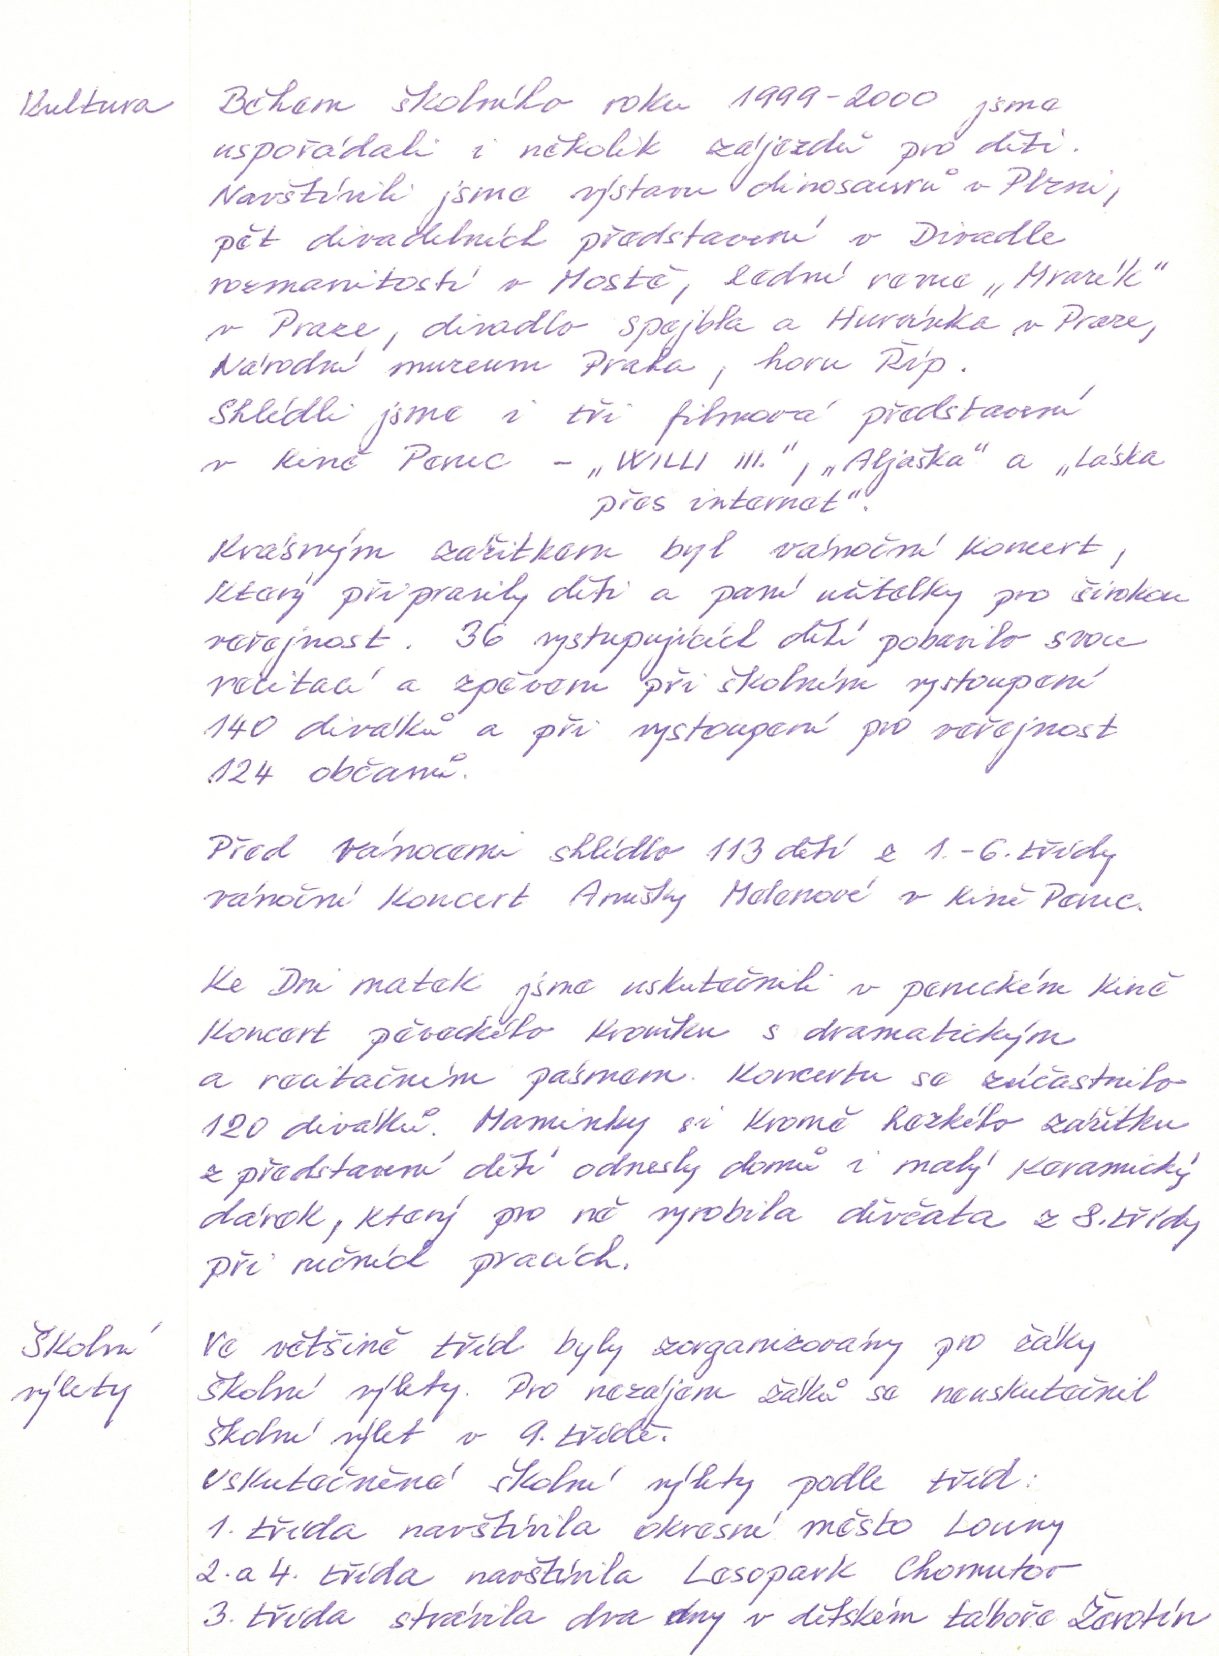 Kultura
Během školního roku 1999-2000 jsme
uspořádali i několik zájezdů pro děti.
Navštívili jsme výstavu dinosaurů v Plzni,
pět divadelních představení v Divadle
rozmanitostí v Mostě, lední revue „Mrazík“
v Praze, divadlo Spejbla a Hurvínka v Praze,
Národní muzeum Praha, horu Říp.
Shlédli jsme i tři filmová představení
v kině Peruc - „WILLI III.“, „Aljaška“ a „Láska
přes internet“.
Krásným zážitkem byl vánoční koncert,
který připravily děti a paní učitelky pro širokou
veřejnost. 36 vystupujících dětí pobavilo svou
recitací a zpěvem při školním vystoupení
140 diváků a při vystoupení pro veřejnost
124 občanů.
Před vánocemi shlédlo 113 dětí z 1.-6. třídy
vánoční koncert Anušky Melenové v kině Peruc.
Ke Dni matek jsme uskutečnili v peruckém kině
koncert pěveckého kroužku s dramatickým
a recitačním pásmem. Koncertu se zúčastnilo
120 diváků. Maminky si kromě hezkého zážitku
z představení dětí odnesly domů i malý keramický
dárek, který pro ně vyrobila děvčata z 8. třídy
při ručních pracích.
Školní
výlety
Ve většině tříd byly zorganizovány pro žáky
školní výlety. Pro nezájem žáků se neuskutečnil
školní výlet v 9. třídě.
Uskutečněné školní výlety podle tříd:
1. třída navštívila okresní město Louny
2. a 4. třída navštívila Lesopark Chomutov
3. třída strávila dva dny v dětském táboře Žerotín